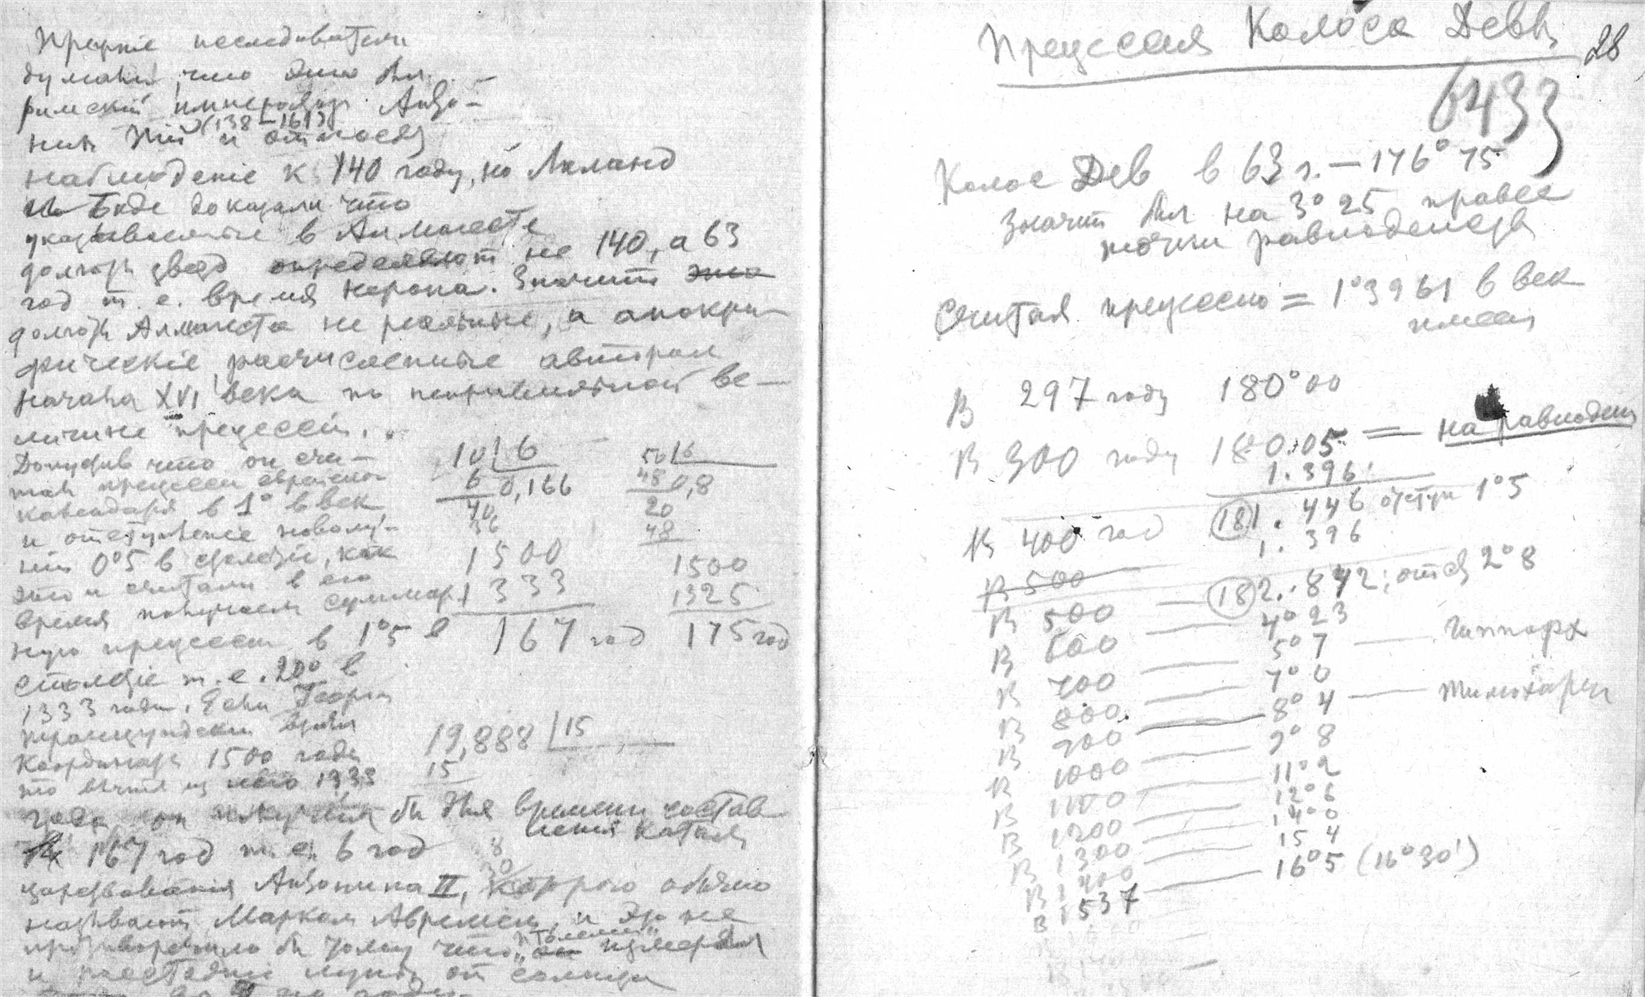 Прежніе изследователи
думали, что это был
римский император Анто-
нин Пий (138-161) и относят
наблюденіе к 140 году, но Лаланд
и Боде доказали что
указываемые в Алмагесте
долготы звезд определяют не 140, а 63
год т. е. время Нерона. Значит это
долготы Алмагеста не реальные, а апокри-
фическіе, расчисленные автором
начала XVI века по неправильной ве-
личине прецессии.
Допустив что он счи-
тал прецессии
календаря в 1° в век
и отступление новолу-
ний 0°5 в столетіе, как
это и считали в его
время получаем суммар-
ную прецессии в 1°5 в
столетіе т. е. 20° в
1333 года. Если Георгий
Трапезундский взял
координаты 1500 года
то вычтя из него 1333
года он получил бы для времени состав
ления каталога
167 год т. е. 6 год
царствования Антонина II, которого обычно
называют Марком Аврелием, и это не
противоречило бы тому что "Птолемей" измерял
и расстояние луны от солнца
10 6
6 0,166
40
36
50 6
48 0,8
20
48
1500
1333
167 год
1500
1325
175 год
19,888 15
15
Прецессия Колоса Девы
28
6433
Колос Дев в 63 г. — 176°75
Значит был на 3°25 правее
точки равноденств
Считая прецессию = 1°3961 в век
имеем
В 297 году 180°00
В 300 году 180.05 = на равноденс
1.396
В 400 год 181.446 отступ 1°5
1.396
В 500
В 500 — 182.842; отст 2°8
В 600 — 4°23
В 700 — 5°7 — Гиппарх
В 800 — 7°0
В 900 — 8°4 — Тимохарис
В 1000 — 9°8
В 1100 — 11°2
В 1200 — 12°6
В 1300 — 14°0
В 1400 — 15 4
В 1537 — 16°5 (16°30')